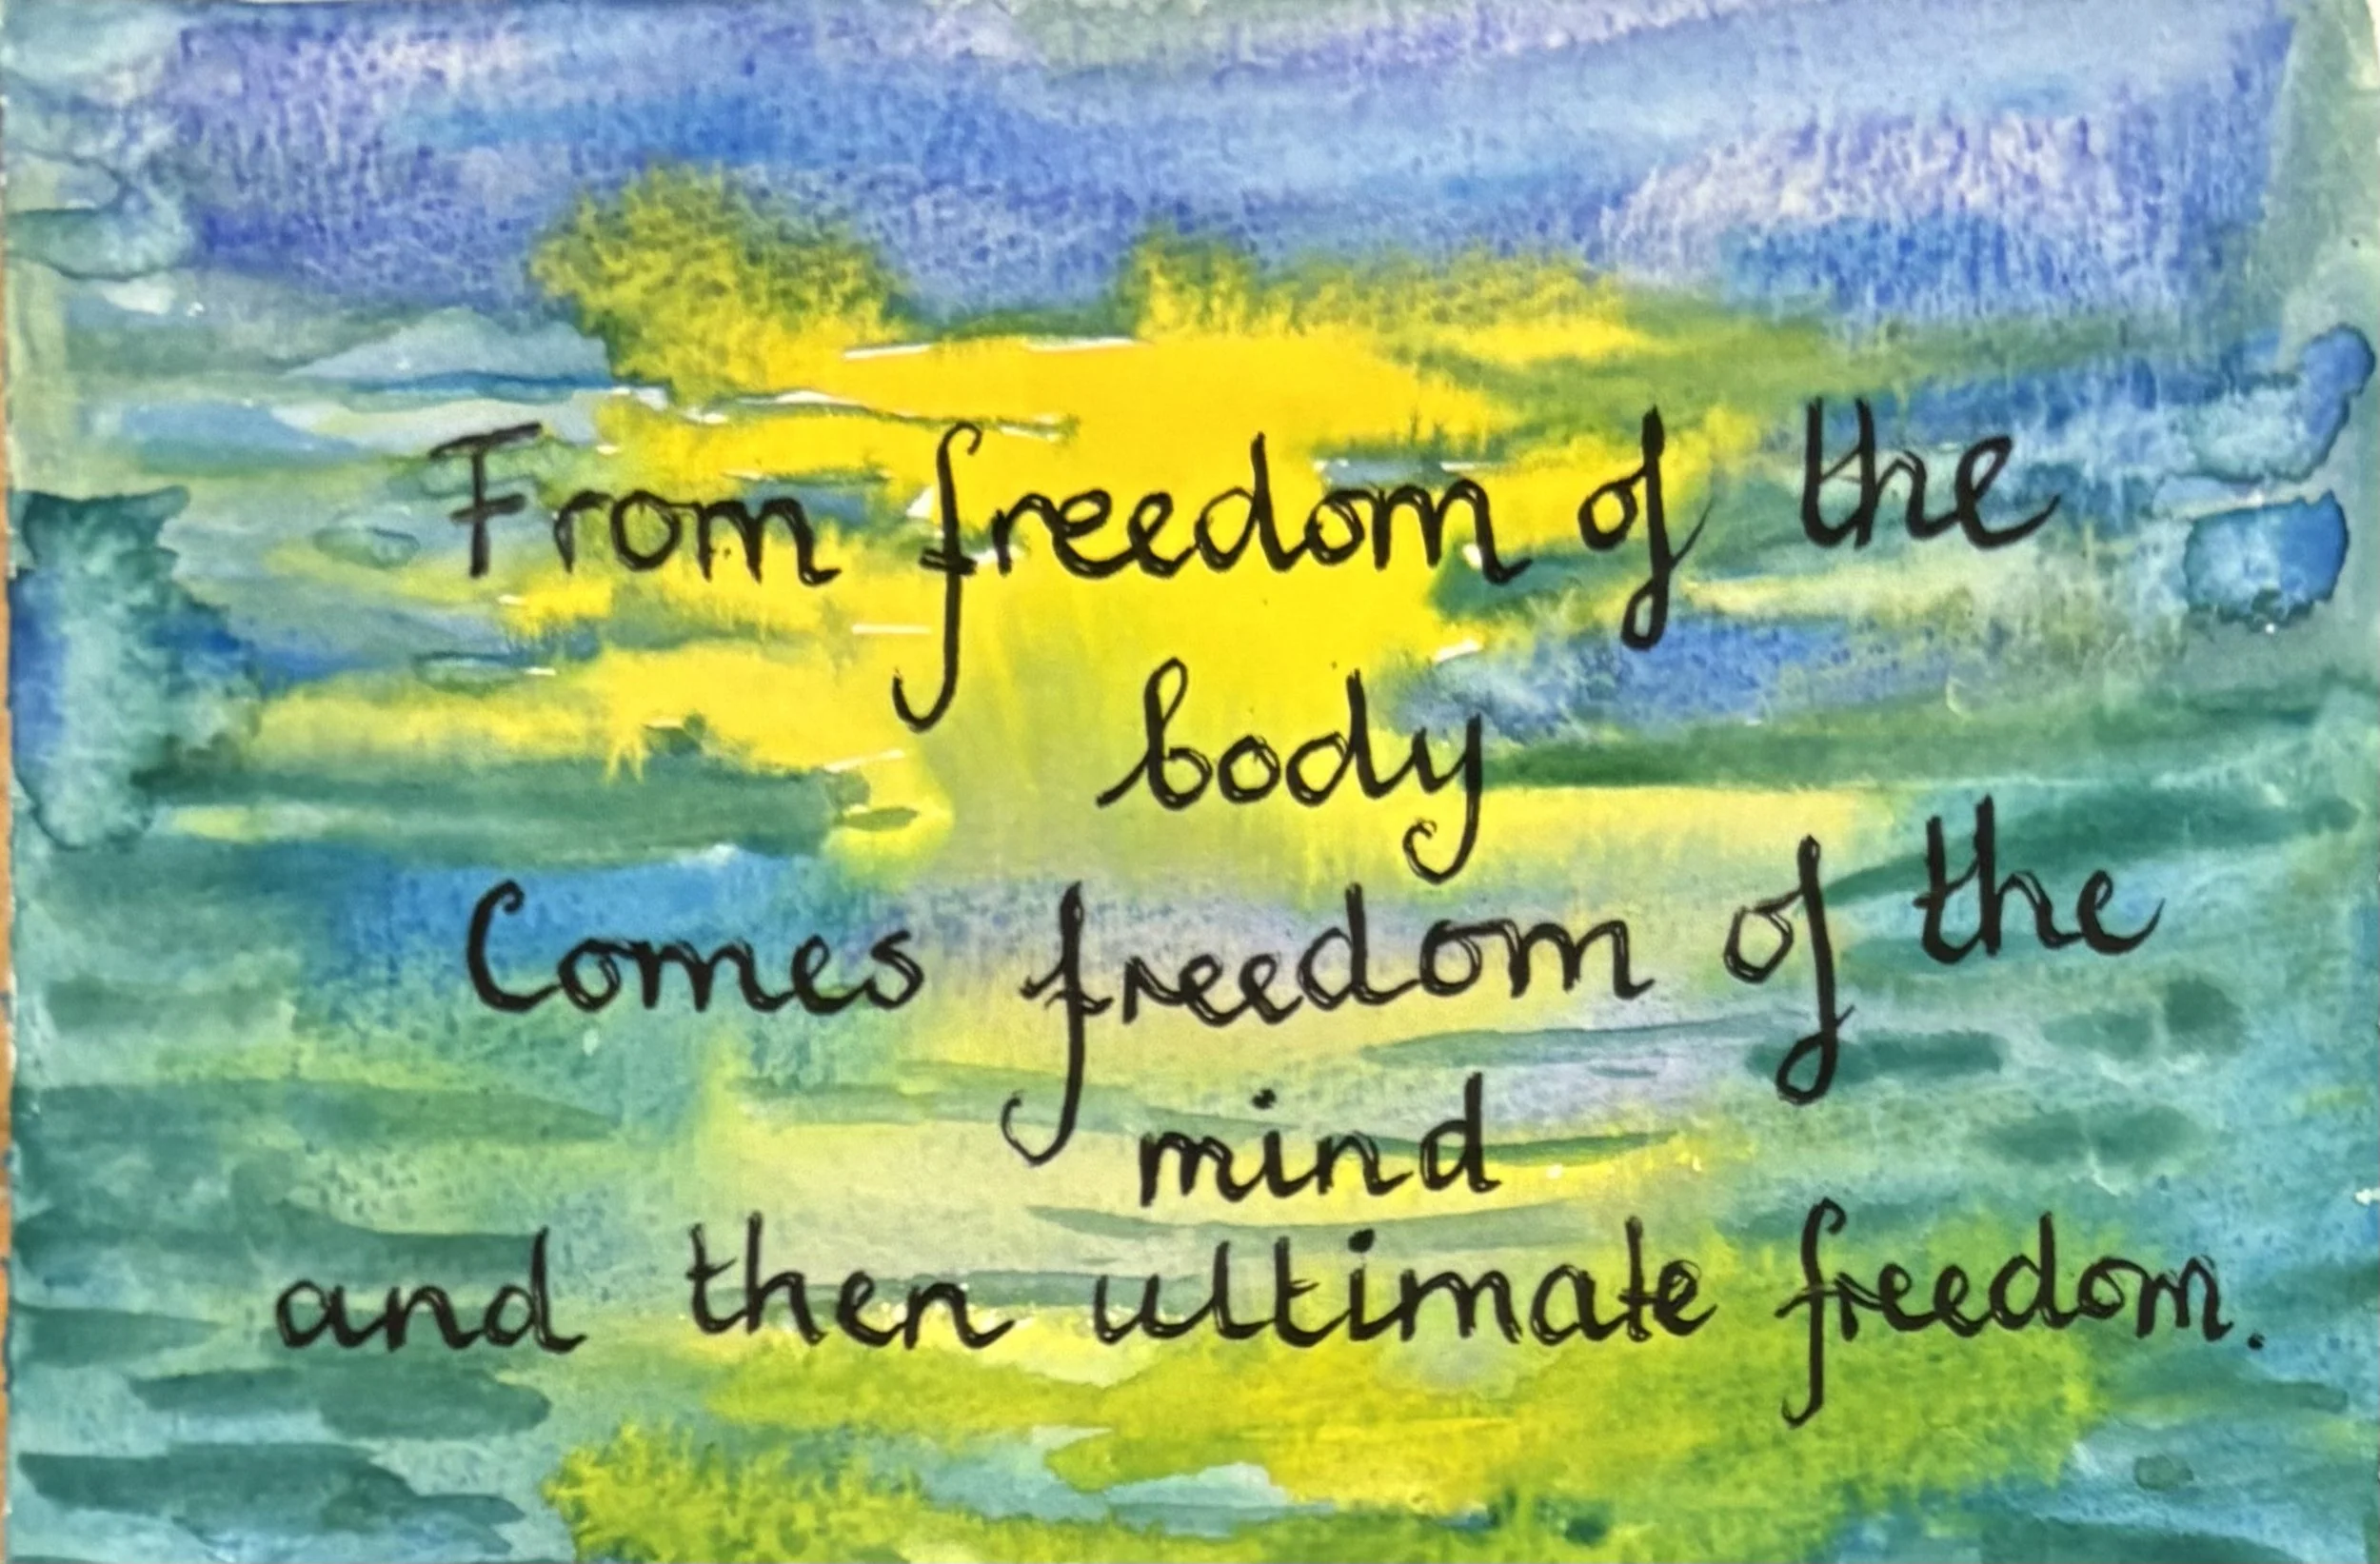 From freedom of the
body
Comes freedom of the
mind
and then ultimate freedom.